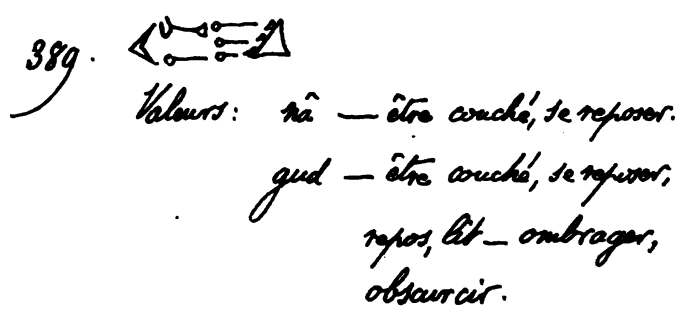 389.
Valeurs: nâ — être couché, se reposer.
gud — être couché, se reposer,
repos, lit — ombrager,
obscurcir.